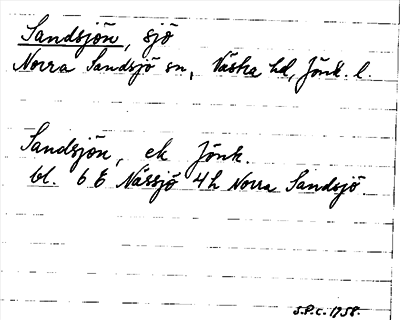 Sandsjön, sjö
Norra Sandsjö sn, Västra hd, Jönk. l.
Sandsjön, ek Jönk.
bl. 6 E Nässjö 4h Norra Sandsjö.
S.P.C. 1958.